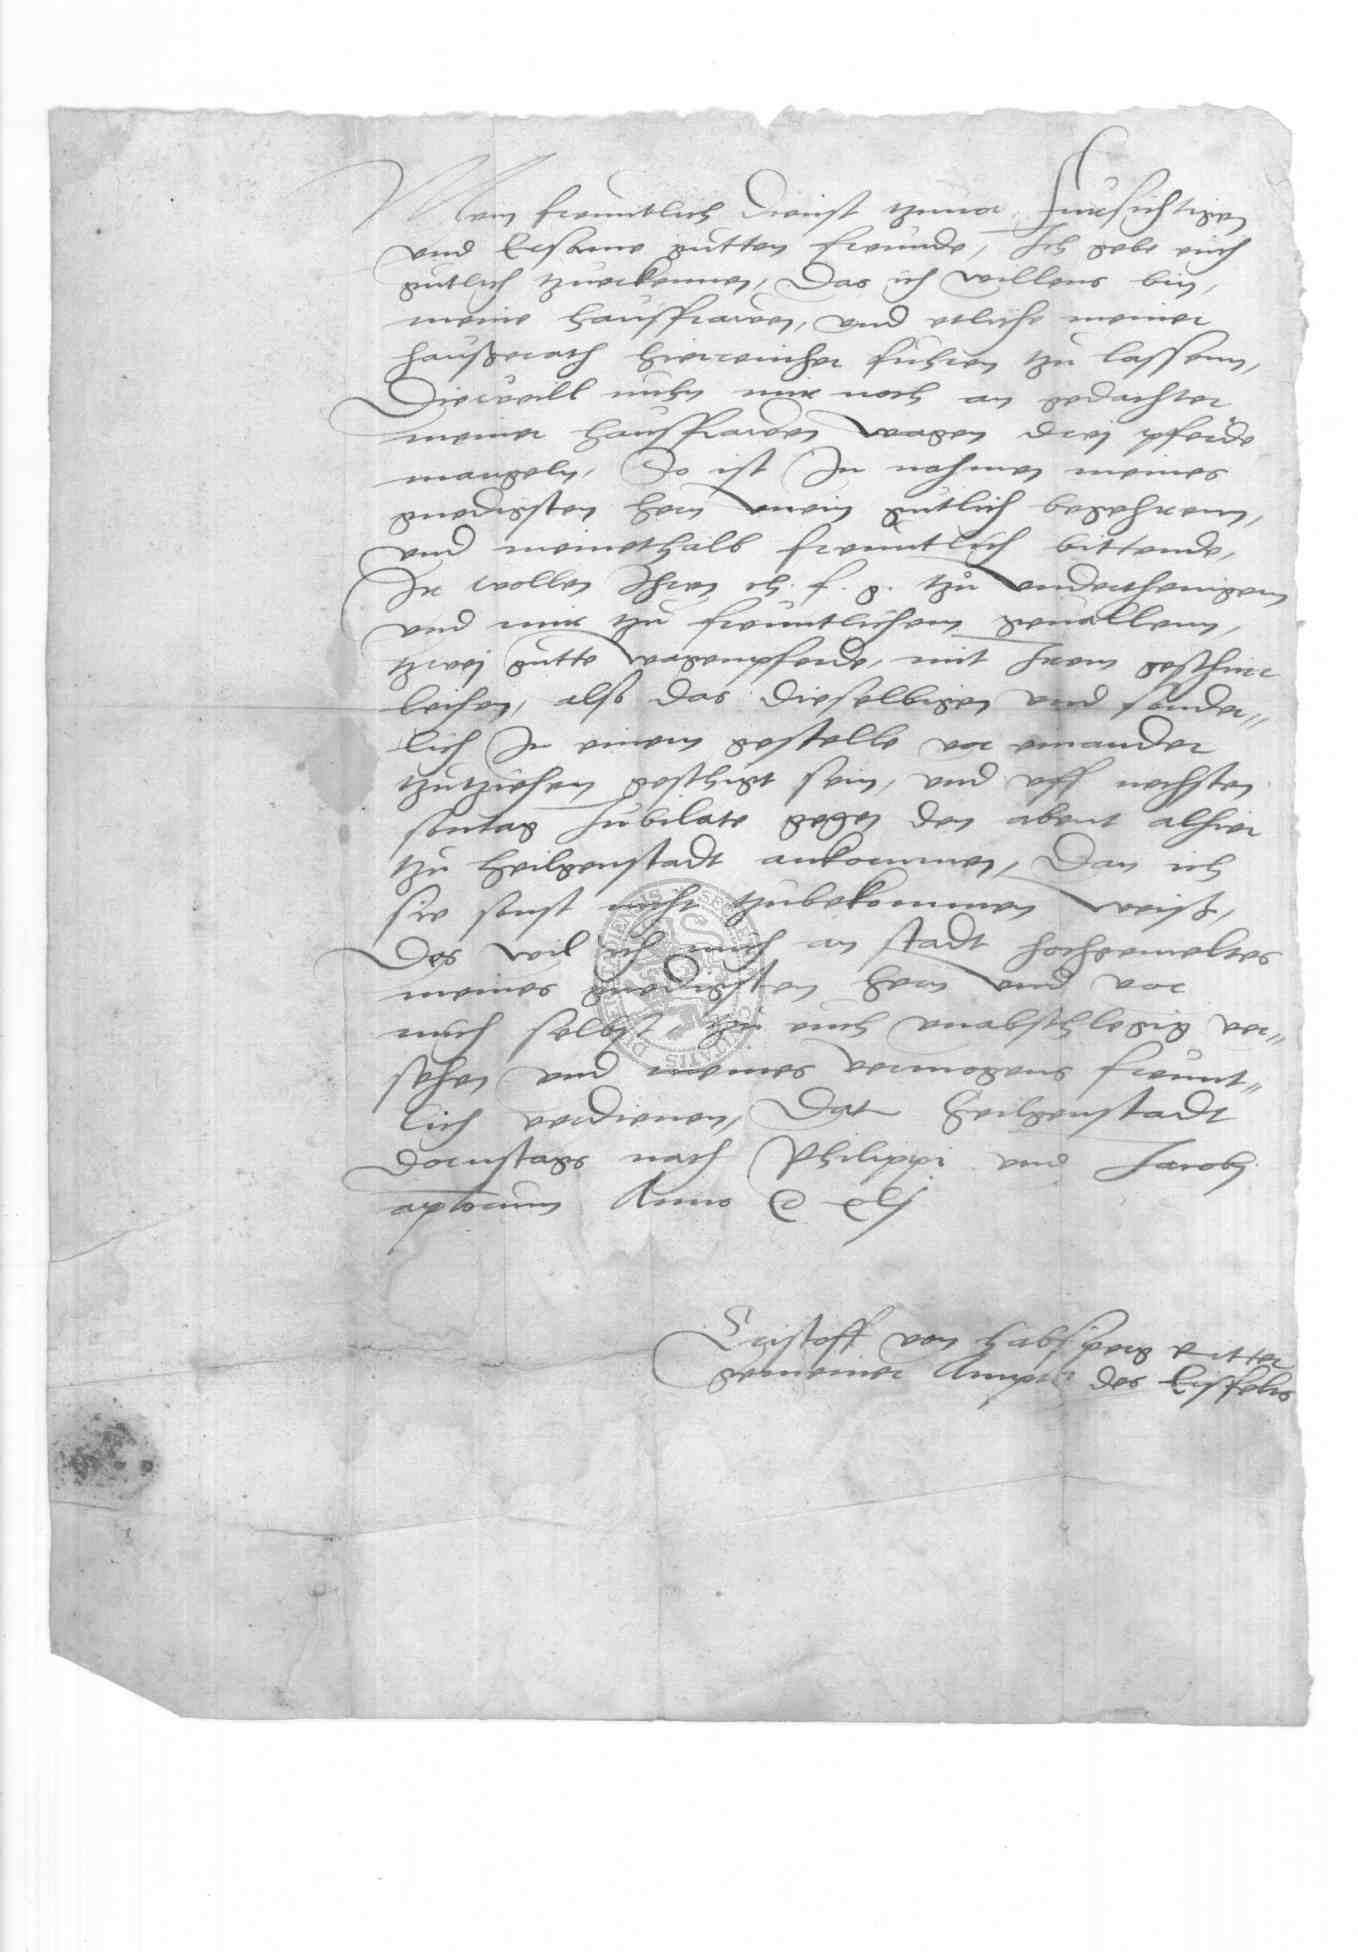 Mein freuntlich Dienst zuuor, Fursichtigen
und Ersame gutten freunde, Ich gebe euch
gutlich tzuerkennen, Das ich willens bin,
meine hausffrawen, und etliche meiner
haußerath hiereinher fuhren tzu lassenn,
Dieweill nuhn mir noch an gedachter
meiner hausffrawen wagen drei pferde
mangeln, So ist In nahmen meines
gnedigsten hern mein gutlich begeherenn,
und meinethalb freuntlich bittende,
Ir wollen Ihren ch. f. g. tzu underthenigem
und mir tzu freuntlichem gewallenn,
tzwei gutte wagenpferde, mit Irem geschirr
leihen, alß das dieselbigen und sunder-
lich In einem gestelle vor einander
tzutziehen geschigkt sein, und uff nechsten
sontag Jubilate gegen den abent alhier
tzu heilgenstadt ankommen, Dan ich
sie sunst nicht tzubekommen weis,
Des wil ich mich an stadt hochgemeltes
meines gnedigsten hern und vor
mich selbst tzu euch unabschlegig ver-
sehen und meines vermogens freunt-
lich verdienen, Dat Heilgenstadt
Dornstags nach Philippi und Jacobi
aplorum Anno
Cristoff von Habsperg ritter
gemeiner Amptm des Eisfelts